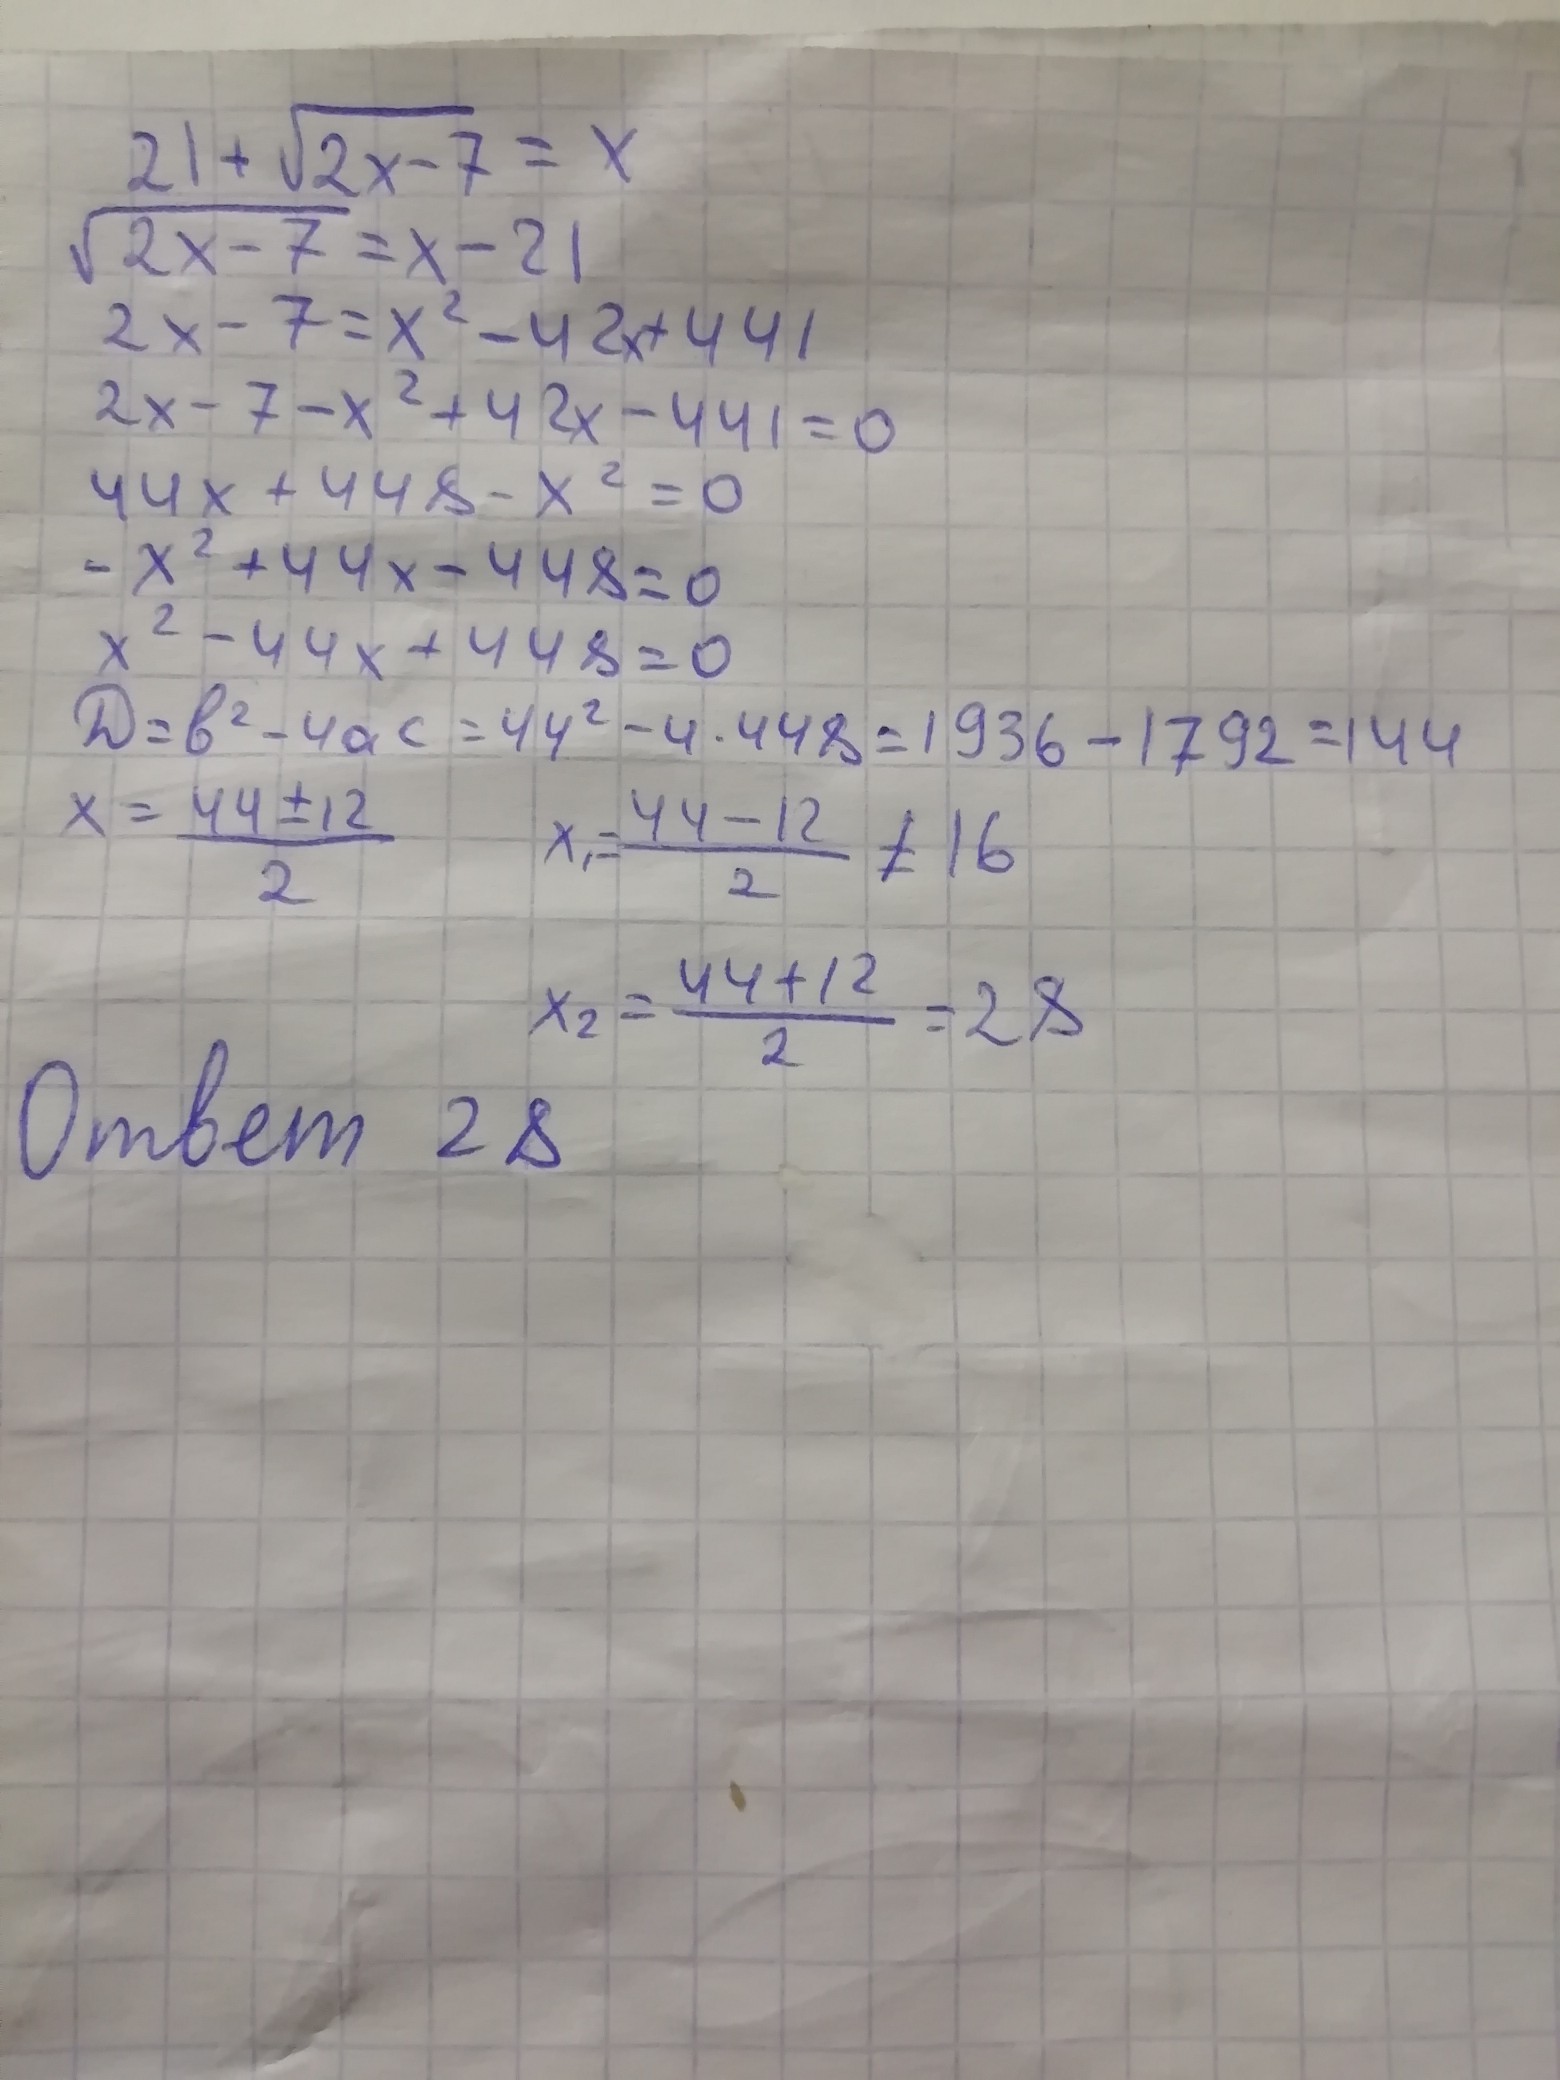 21+√2x-7 = x
√2x-7 = x-21
2x-7 = x²-42x+441
2x-7-x²+42x-441=0
44x+448-x²=0
-x²+44x-448=0
x²-44x+448=0
D=b²-4ac=44²-4·448=1936-1792=144
x = (44±12)/2 x₁= (44-12)/2 ≠ 16
x₂ = (44+12)/2 = 28
Ответ 28